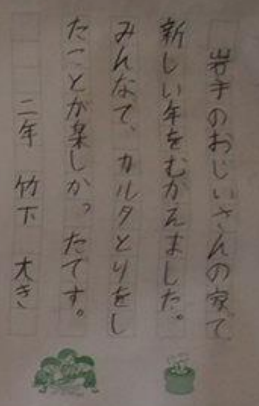 岩手のおじいさんの家で
新しい年をむかえました。
みんなで、カルタとりをし
たことが楽しかったです。
二年 竹下 大き